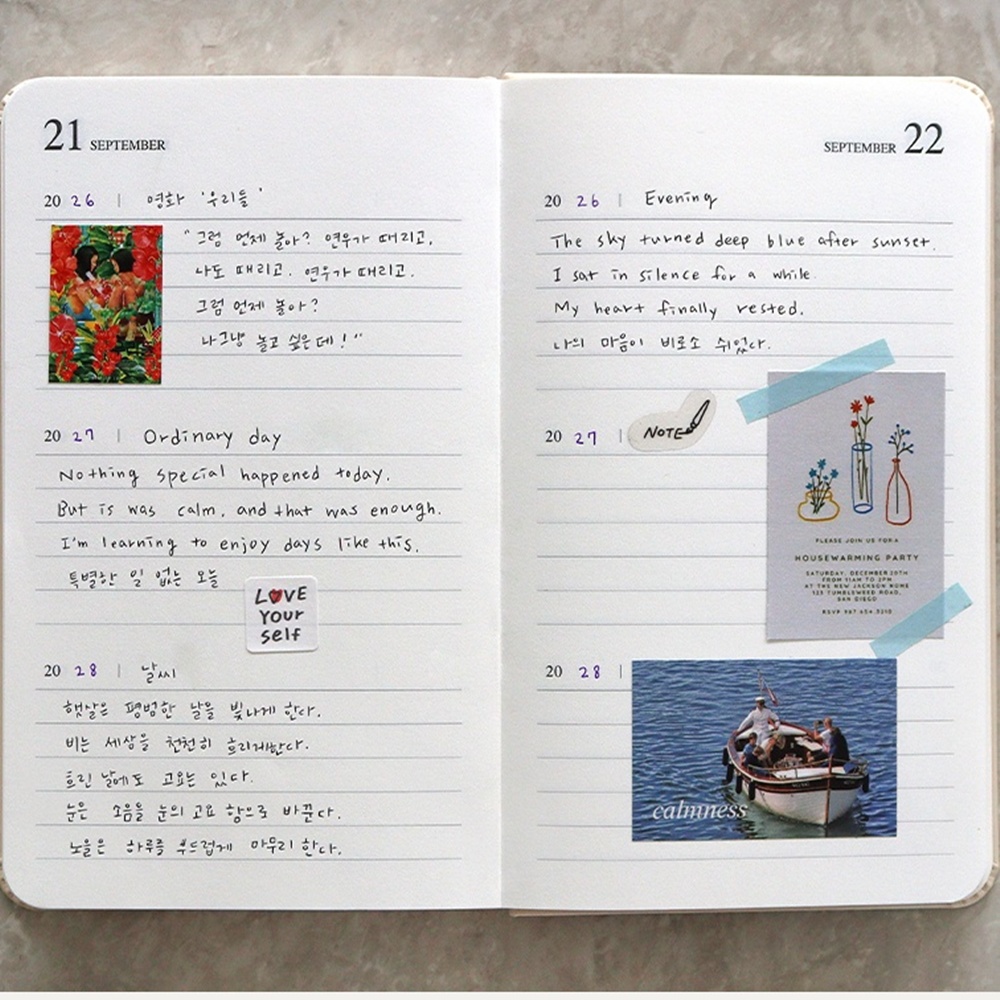 21 SEPTEMBER
20 26 | 영화 '우리들'
"그럼 언제 놀아? 연우가 때리고,
나도 때리고. 연우가 때리고.
그럼 언제 놀아?
나 그냥 놀고 싶은데!"
20 27 | Ordinary day
Nothing special happened today.
But is was calm, and that was enough.
I'm learning to enjoy days like this.
특별한 일 없는 오늘
LOVE
Your
self
20 28 | 날씨
햇살은 평범한 날을 빛나게 한다.
비는 세상을 천천히 흐리게한다.
흐린 날에도 고요는 있다.
눈은 소음을 눈의 고요 함으로 바꾼다.
노을은 하루를 부드럽게 마무리 한다.
SEPTEMBER 22
20 26 | Evening
The sky turned deep blue after sunset.
I sat in silence for a while.
My heart finally rested.
나의 마음이 비로소 쉬었다.
20 27 |
NOTE
PLEASE JOIN US FOR A
HOUSEWARMING PARTY
SATURDAY, DECEMBER 20TH
FROM 11AM TO 2PM
AT THE NEW JACKSON HOME
123 TUMBLEWEED ROAD,
SAN DIEGO
RSVP 987.654.3210
20 28 |
calmness